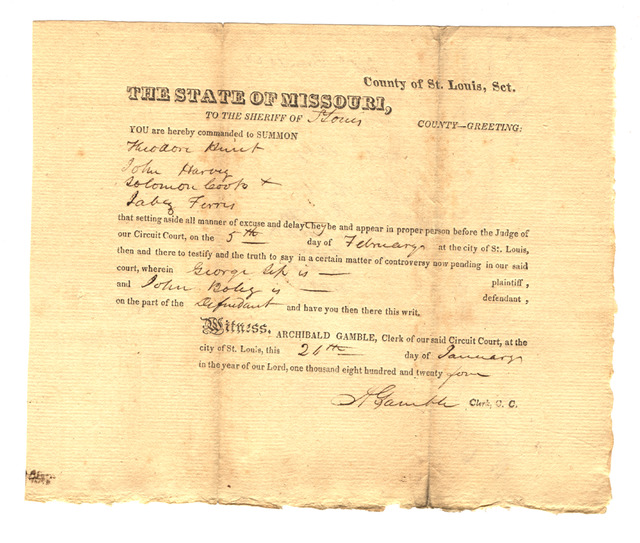 County of St. Louis, Sct.
THE STATE OF MISSOURI,
TO THE SHERIFF OF St Louis COUNTY—GREETING:
YOU are hereby commanded to SUMMON
Theodore Hunt
John Harvey
Solomon Cook +
Jabez Ferris
that setting aside all manner of excuse and delay They be and appear in proper person before the Judge of
our Circuit Court, on the 5th day of February at the city of St. Louis,
then and there to testify and the truth to say in a certain matter of controversy now pending in our said
court, wherein George is — plaintiff,
and John is — defendant,
on the part of the Defendant and have you then there this writ.
Witness, ARCHIBALD GAMBLE, Clerk of our said Circuit Court, at the
city of St. Louis, this 26th day of January
in the year of our Lord, one thousand eight hundred and twenty four
A Gamble Clerk, C. C.